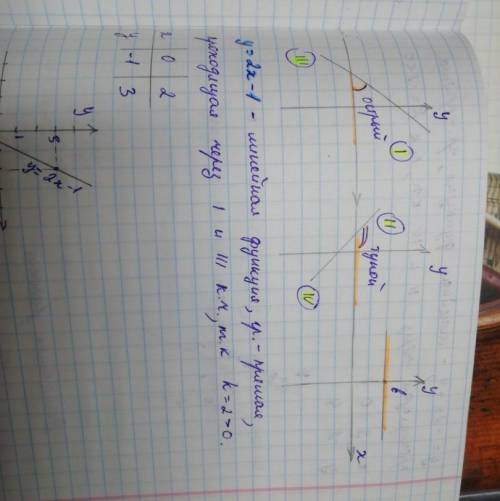 y
y
y
III
I
острый
II
тупой
IV
b
x
y=2x-1 - линейная функция, гр. - прямая,
проходящая через I и III к.ч., т.к k=2>0.
x 0 2
y -1 3
y
3
1
y=2x-1